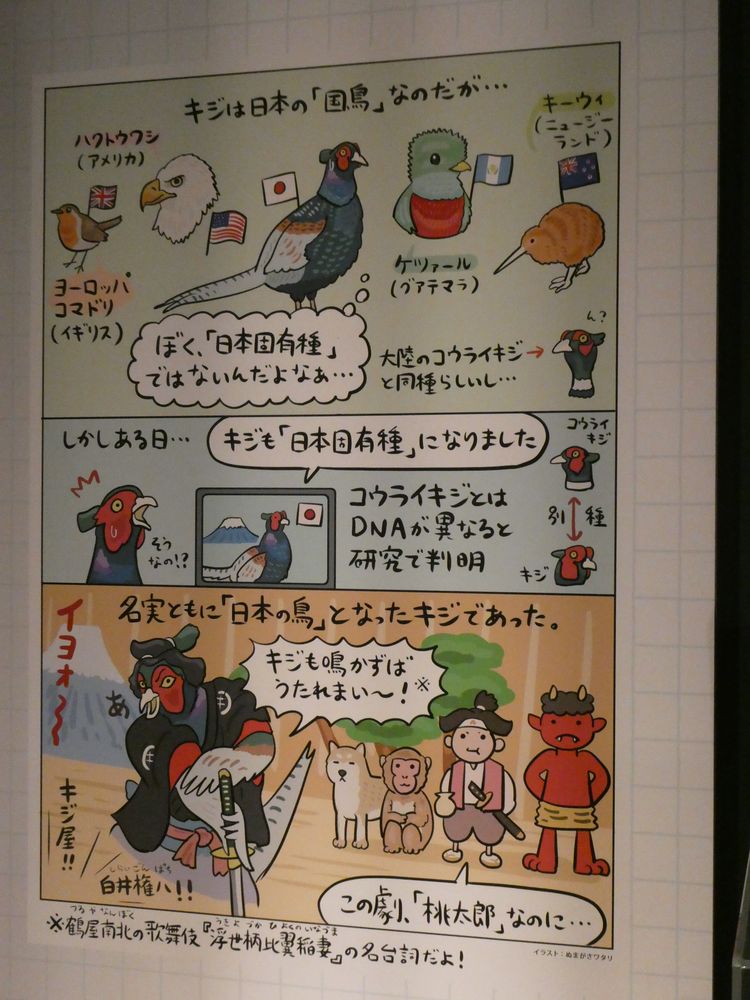 キジは日本の「国鳥」なのだが…
ハクトウワシ
(アメリカ)
キーウィ
(ニュージー
ランド)
ヨーロッパ
コマドリ
(イギリス)
ケツァール
(グアテマラ)
ぼく、「日本固有種」
ではないんだよなぁ…
ん?
大陸のコウライキジ→
と同種らしいし…
しかしある日…
キジも「日本固有種」になりました
そう
なの!?
コウライキジとは
DNAが異なると
研究で判明
コウライ
キジ
別種
キジ
名実ともに「日本の鳥」となったキジであった。
イヨォ〜〜
あ
キジも鳴かずば
うたれまい〜!※
キジ屋!!
しらい ごんぱち
白井権八!!
この劇、「桃太郎」なのに…
つるやなんぼく
うきよづかひよくのいなづま
※鶴屋南北の歌舞伎『浮世柄比翼稲妻』の名台詞だよ!
イラスト:ぬまがさワタリ